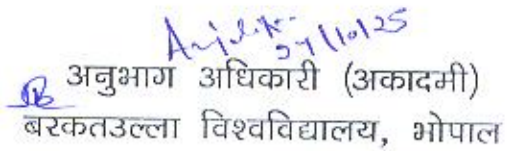 27/10/25
अनुभाग अधिकारी (अकादमी)
बरकतउल्ला विश्वविद्यालय, भोपाल